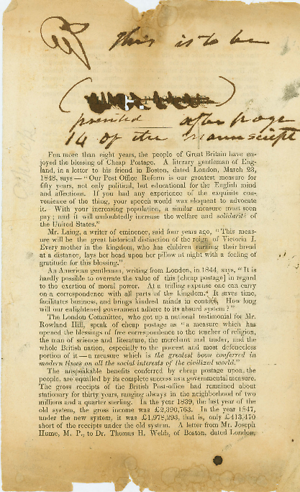 This is to be
printed after page
14 of the Manuscript
FOR more than eight years, the people of Great Britain have en-
joyed the blessing of Cheap Postage. A literary gentleman of Eng-
land, in a letter to his friend in Boston, dated London, March 23,
1848, says—"Our Post Office Reform is our greatest measure for
fifty years, not only political, but educational for the English mind
and affections. If you had any experience of the exquisite con-
venience of the thing, your speech would wax eloquent to advocate
it. With your increasing population, a similar measure must soon
pay; and it will undoubtedly increase the welfare and solidarité of
the United States."
Mr. Laing, a writer of eminence, said four years ago, "This meas-
ure will be the great historical distinction of the reign of Victoria I.
Every mother in the kingdom, who has children earning their bread
at a distance, lays her head upon her pillow at night with a feeling of
gratitude for this blessing."
An American gentleman, writing from London, in 1844, says, "It is
hardly possible to overrate the value of this [cheap postage] in regard
to the exertion of moral power. At a trifling expense one can carry
on a correspondence with all parts of the kingdom. It saves time,
facilitates business, and brings kindred minds in contact. How long
will our enlightened government adhere to its absurd system?"
The London Committee, who got up a national testimonial for Mr.
Rowland Hill, speak of cheap postage as "a measure which has
opened the blessings of free correspondence to the teacher of religion,
the man of science and literature, the merchant and trader, and the
whole British nation, especially to the poorest and most defenceless
portion of it—a measure which is the greatest boon conferred in
modern times on all the social interests of the civilized world."
The unspeakable benefits conferred by cheap postage upon the
people, are equalled by its complete success as a governmental measure.
The gross receipts of the British Post-office had remained about
stationary for thirty years, ranging always in the neighborhood of two
millions and a quarter sterling. In the year 1839, the last year of the
old system, the gross income was £2,390,763. In the year 1847,
under the new system, it was £1,978,293, that is, only £413,470
short of the receipts under the old system. A letter from Mr. Joseph
Hume, M. P., to Dr. Thomas H. Webb, of Boston, dated London,